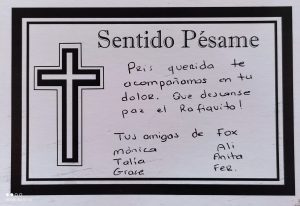 Sentido Pésame
Pris querida te
acompañamos en tu
dolor. Que descanse
paz el Rafiquito!
Tus amigas de Fox
Mónica Ali
Talia Anita
Grace Fer.